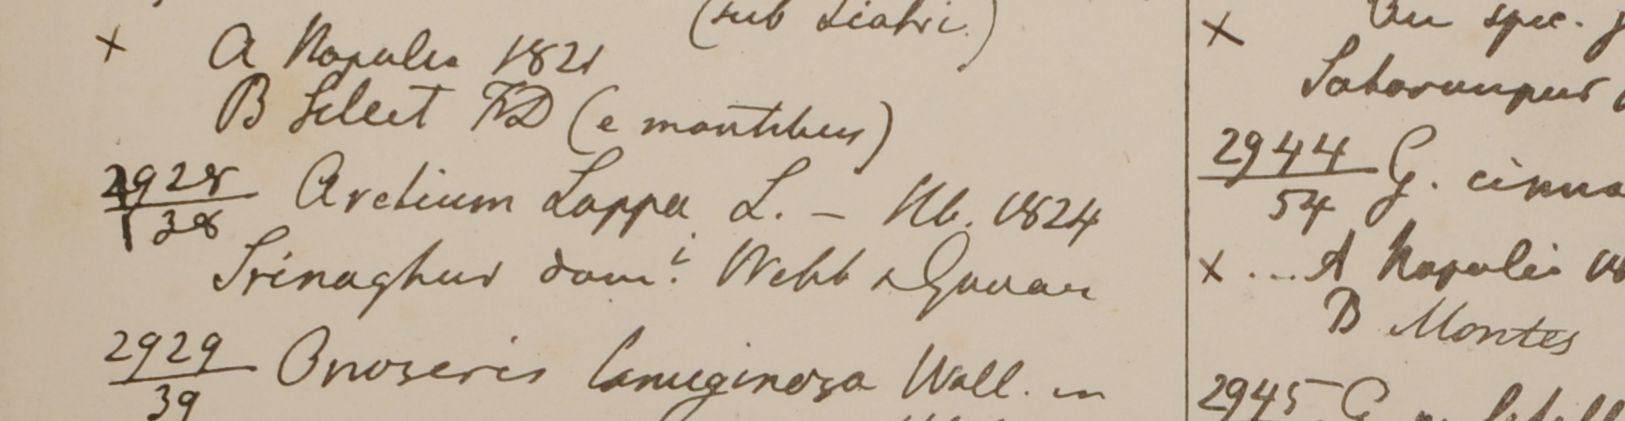 (sub Liatri.)
× A Napalia 1821
B Silleet FD (e montibus)
2928 Arctium Lappa L. – Hb. 1824
38
Srinaghur dom. Webb &
2929 Onoseris lanuginosa Wall. in
39
× An spec.
Saharunpur
2944 G.
54
× ... A Napalia
B Montes
2945 G.